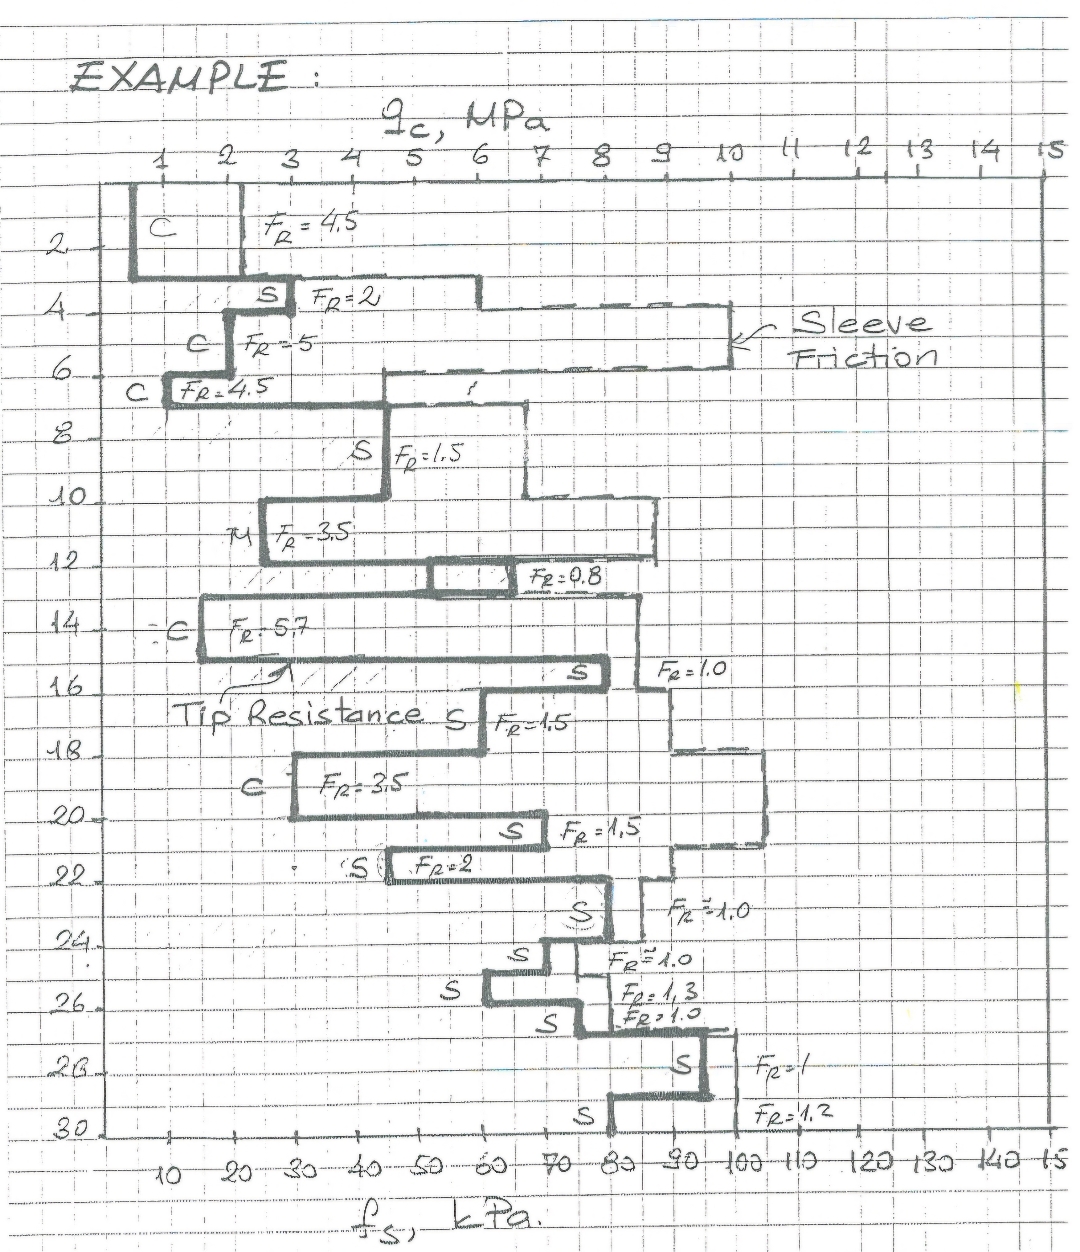 EXAMPLE :
qc, MPa
1 2 3 4 5 6 7 8 9 10 11 12 13 14 15
C FR = 4.5
2
S FR = 2
4
Sleeve
C FR = 5
Friction
6
C FR = 4.5
8
S FR = 1.5
10
M FR = 3.5
12
FR = 0.8
14
C FR = 5,7
S FR = 1.0
16
Tip Resistance S FR = 1.5
18
C FR = 3.5
20
S FR = 1,5
S FR = 2
22
S FR = 1.0
24
S FR = 1.0
S FR = 1,3
26
S FR = 1.0
28
S FR = 1
S FR = 1.2
30
10 20 30 40 50 60 70 80 90 100 110 120 130 140 15
fs, kPa.